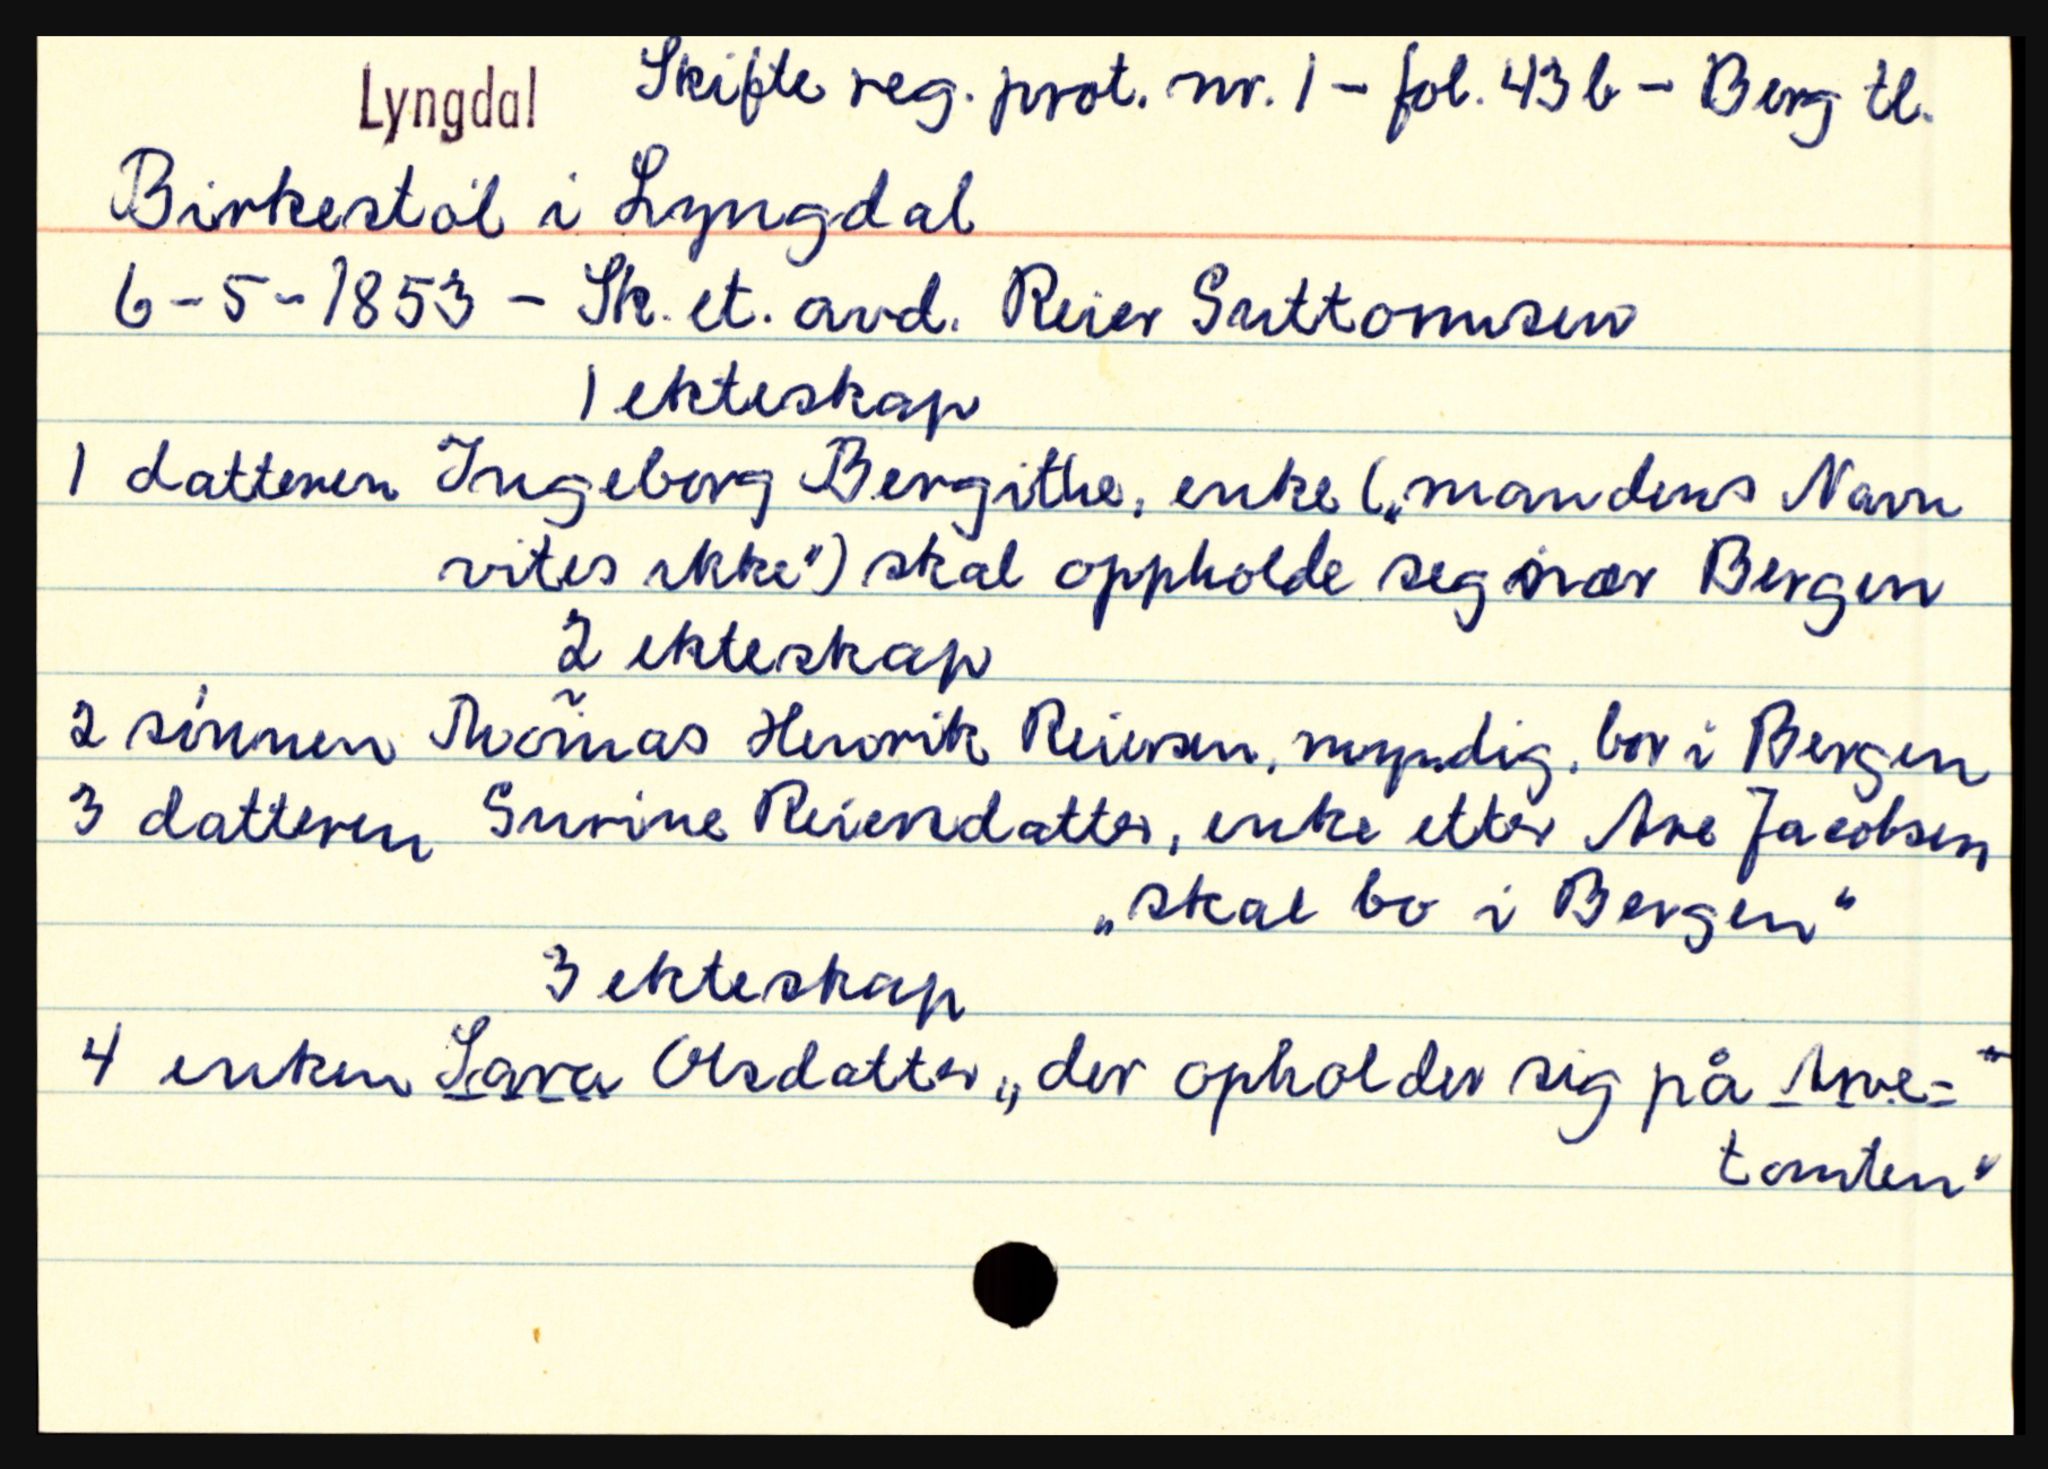 Lyngdal Skifte reg. prot. nr. 1 - fol. 43 b - Berg tl.
Birkestøl i Lyngdal
6-5-1853 - Sk. et. avd. Reier Guttormsen
1 ekteskap
1 datteren Ingeborg Bergithe, enke („mandens Navn
vites ikke”) skal oppholde seg nær Bergen
2 ekteskap
2 sønnen Thomas Henrik Reiersen, myndig, bor i Bergen
3 datteren Gurine Reiersdatter, enke etter Are Jacobsen
„skal bo i Bergen“
3 ekteskap
4 enken Sara Olsdatter „der opholder sig på Arve-“
tomten“